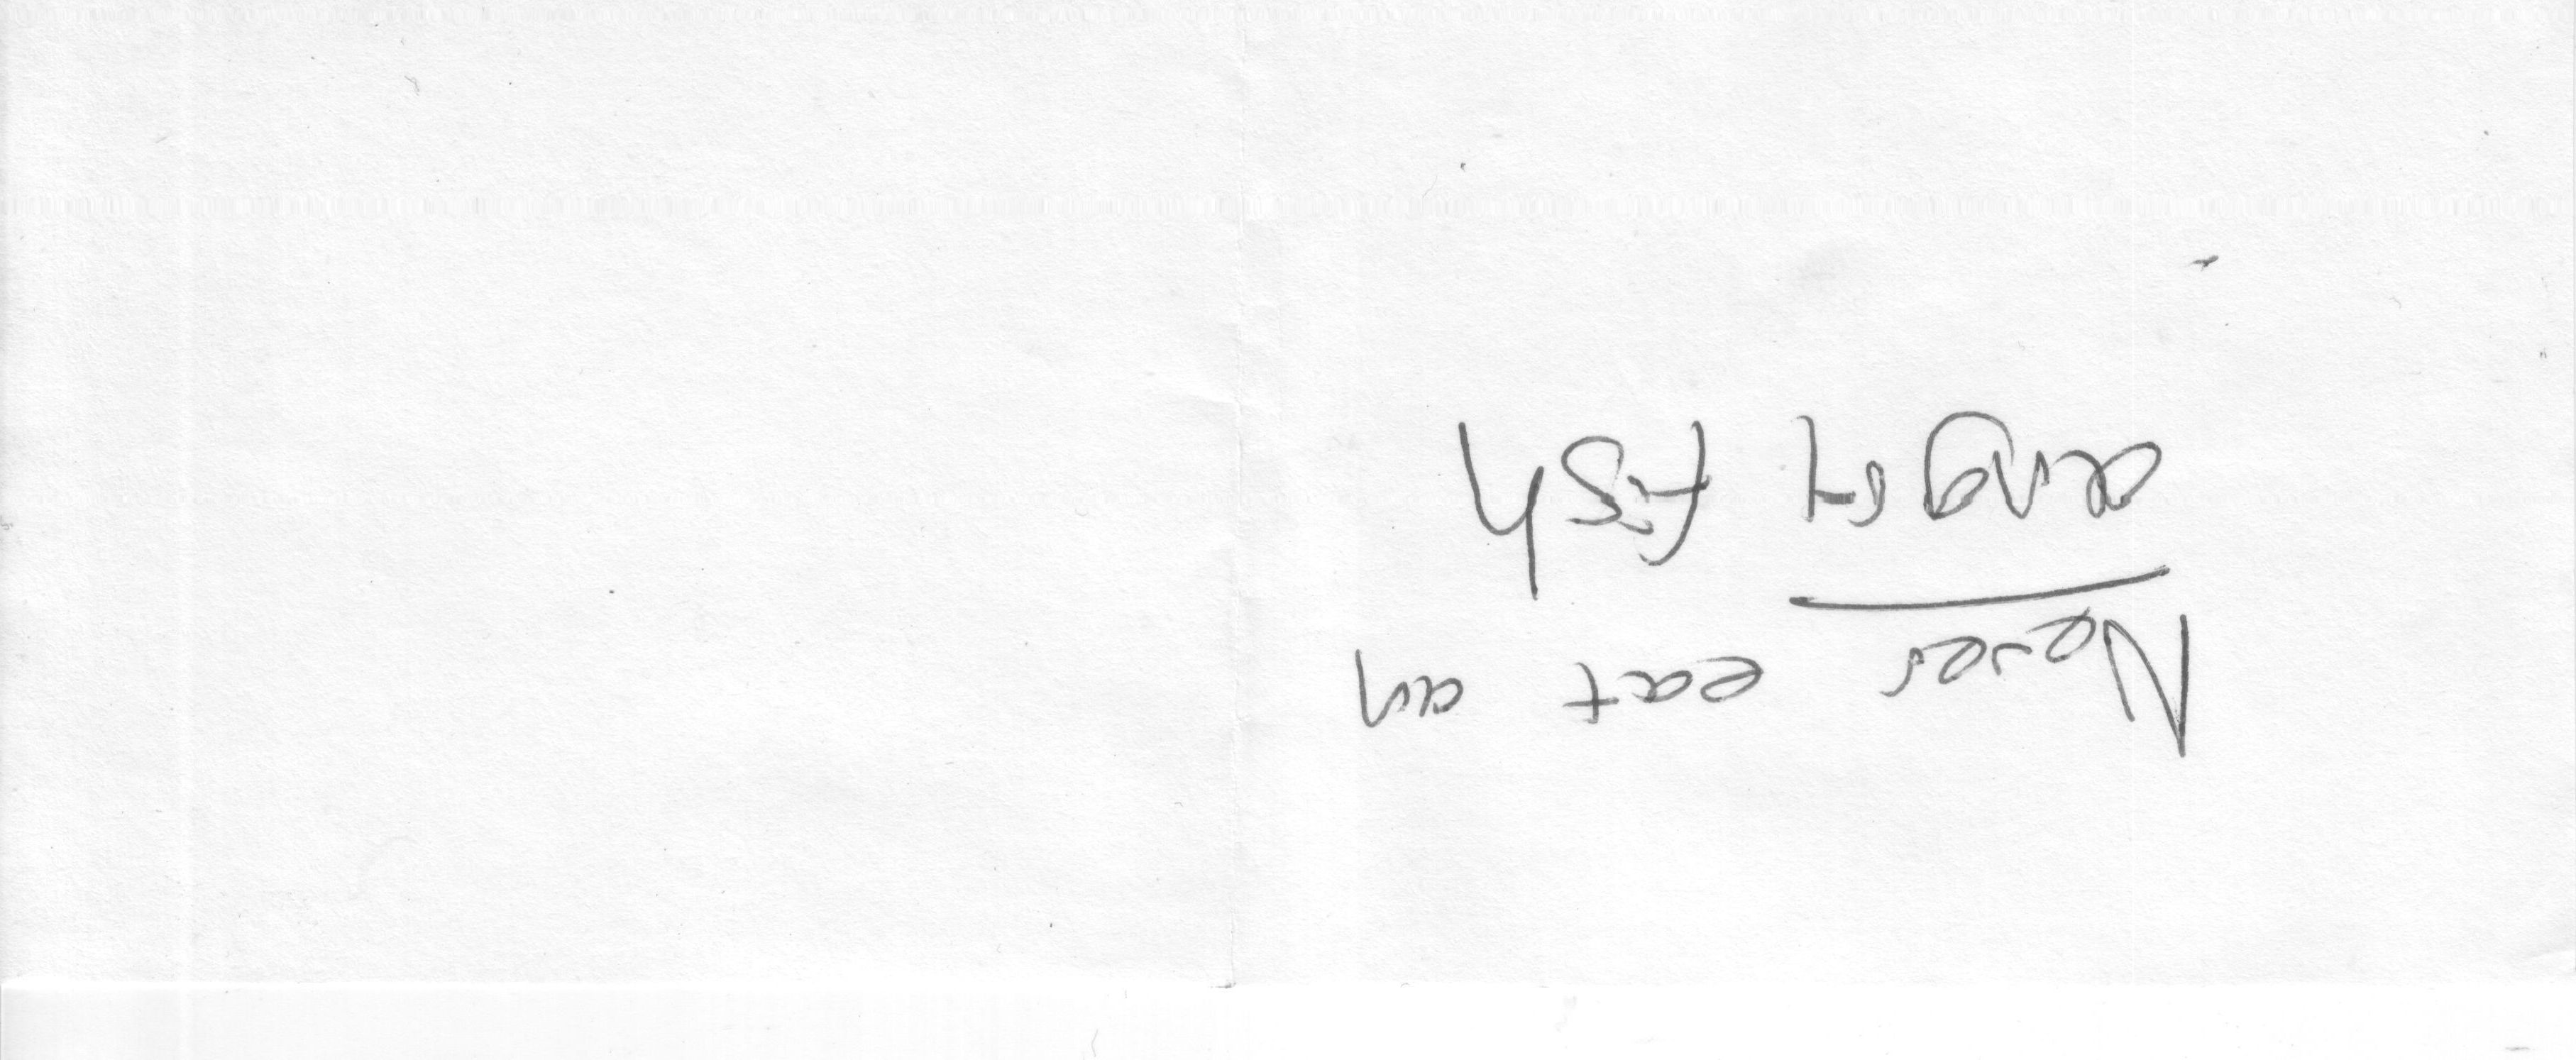 Never eat an
angry fish